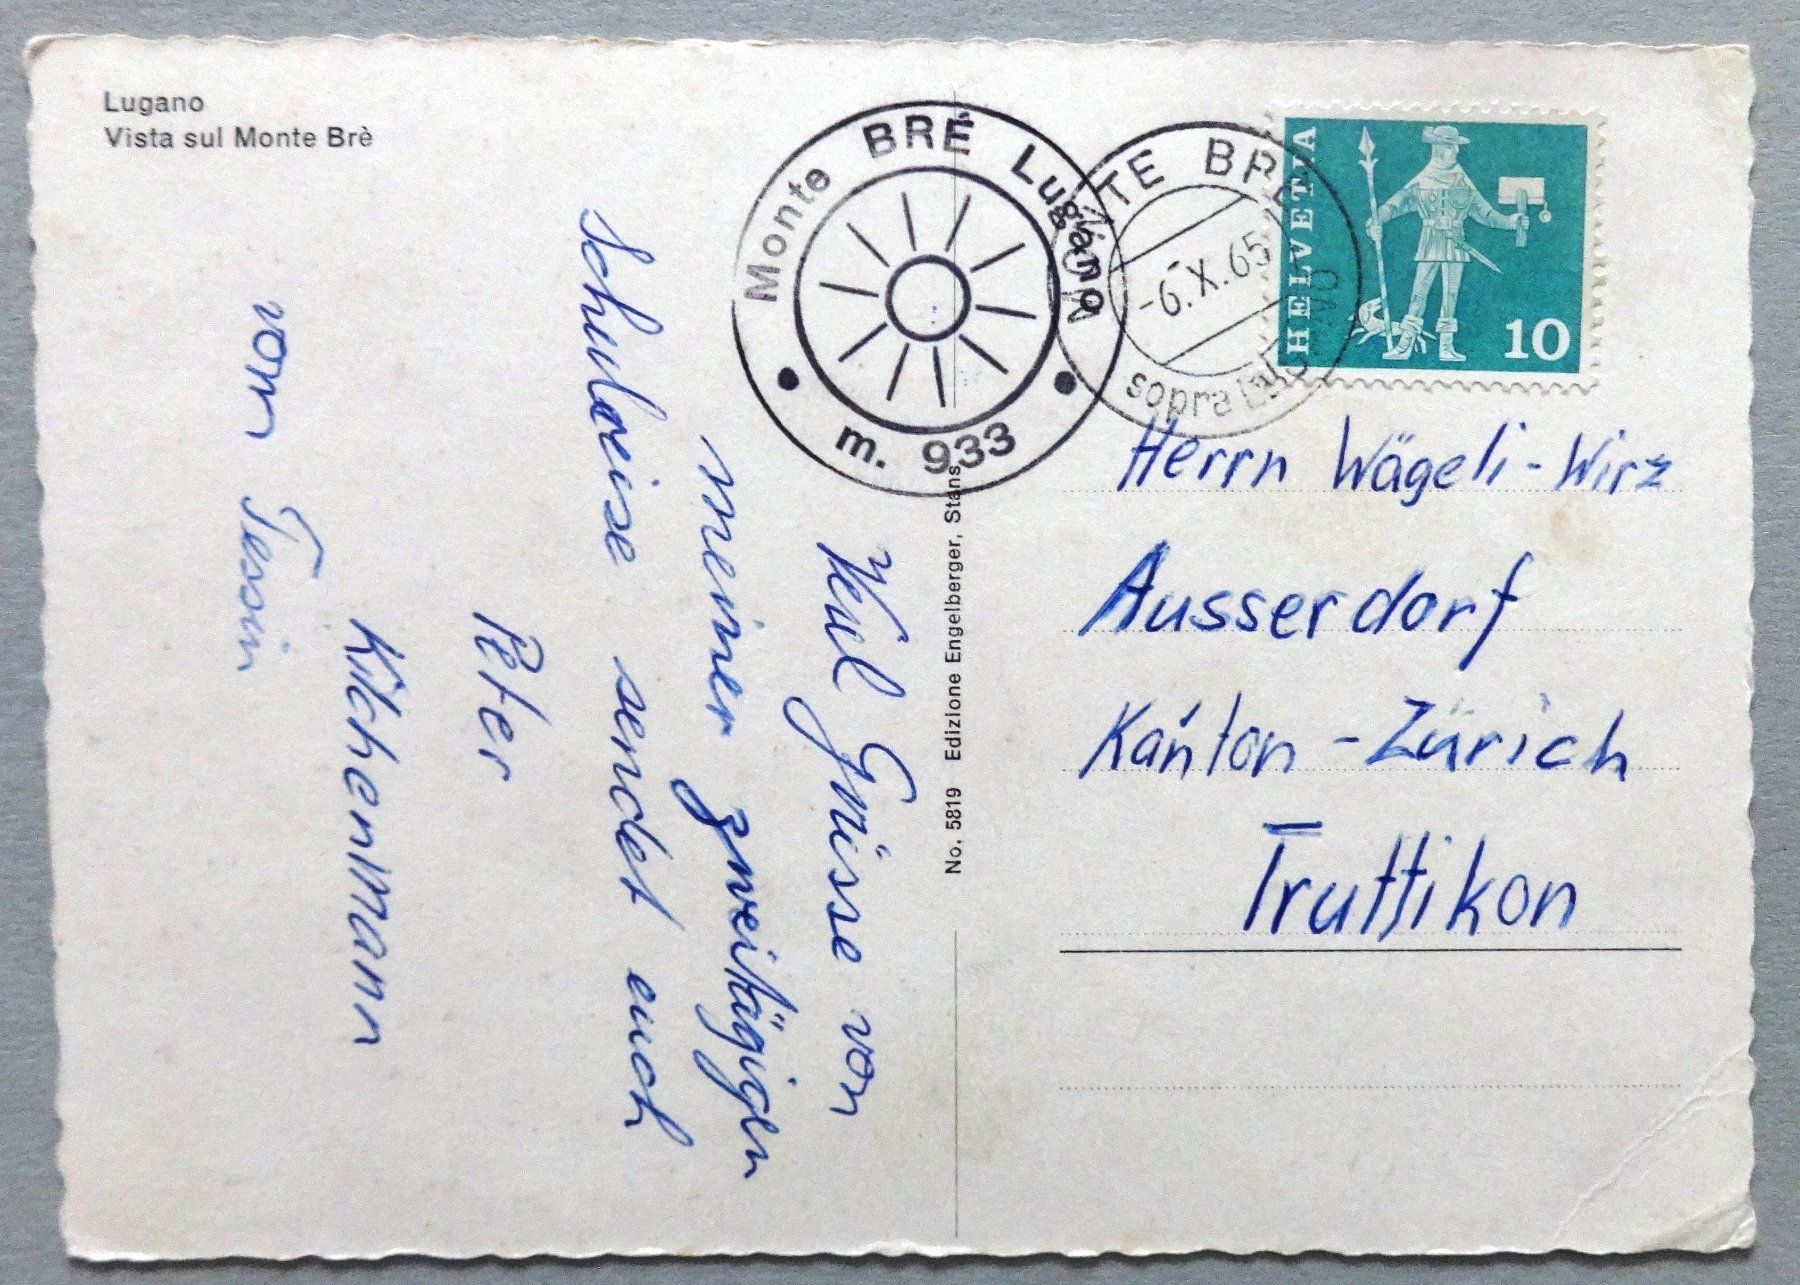 Lugano
Vista sul Monte Brè
Monte BRÈ Lugano
m. 933
MONTE BRÈ
-6.X.65
sopra
HELVETIA
10
No. 5819 Edizione Engelberger, Stans
Viel Grüsse von
meiner zweitägigen
Schulreise sendet euch
Peter
Kilchenmann
vom Tessin
Herrn Wägeli-Wirz
Ausserdorf
Kanton-Zürich
Truttikon